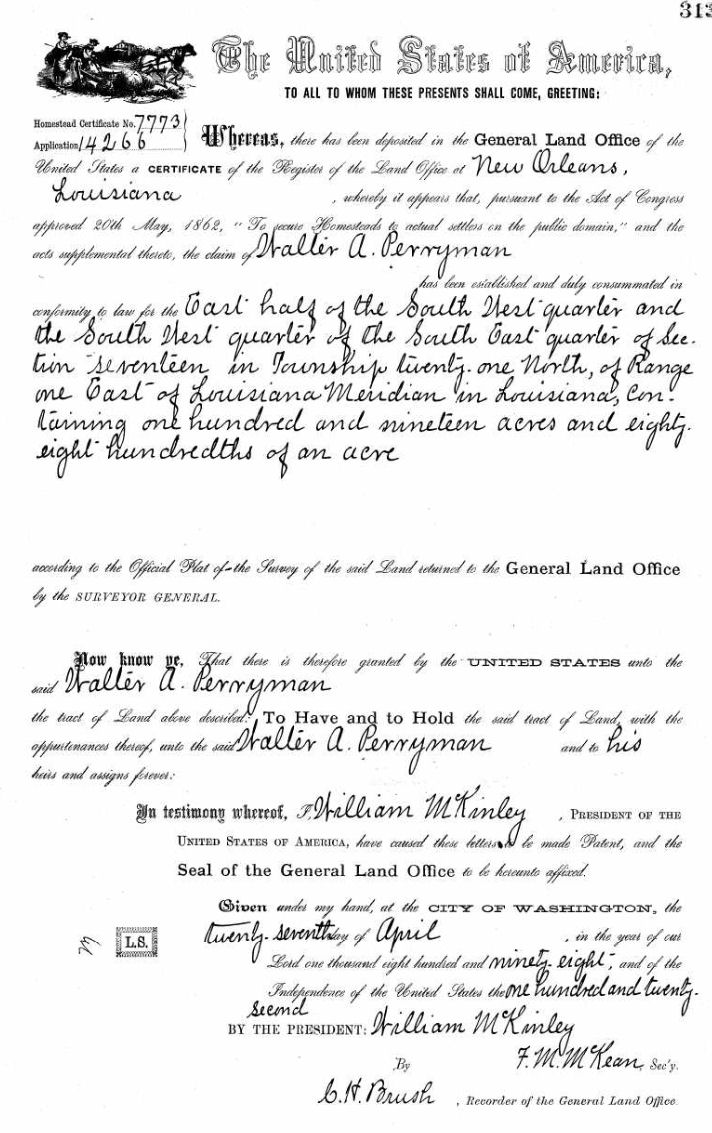 313
The United States of America,
TO ALL TO WHOM THESE PRESENTS SHALL COME, GREETING:
Homestead Certificate No. 7773
Application 14266
Whereas, there has been deposited in the General Land Office of the
United States a CERTIFICATE of the Register of the Land Office at New Orleans,
Louisiana , whereby it appears that, pursuant to the Act of Congress
approved 20th May, 1862, "To secure Homesteads to actual settlers on the public domain," and the
acts supplemental thereto, the claim of Walter A. Perryman
has been established and duly consummated in
conformity to law for the East half of the South West quarter and
the South West quarter of the South East quarter of Sec-
tion seventeen in Township twenty-one North, of Range
one East of Louisiana Meridian in Louisiana, con-
taining one hundred and nineteen acres and eighty-
eight hundredths of an acre
according to the Official Plat of the Survey of the said Land returned to the General Land Office
by the SURVEYOR GENERAL.
Now know ye, That there is therefore granted by the UNITED STATES unto the
said Walter A. Perryman
the tract of Land above described: To Have and to Hold the said tract of Land, with the
appurtenances thereof, unto the said Walter A. Perryman and to his
heirs and assigns forever:
In testimony whereof, I, William McKinley , PRESIDENT OF THE
UNITED STATES OF AMERICA, have caused these letters to be made Patent, and the
Seal of the General Land Office to be hereunto affixed.
Given under my hand, at the CITY OF WASHINGTON, the
twenty-seventh day of April , in the year of our
L.S.
Lord one thousand eight hundred and ninety-eight, and of the
Independence of the United States the one hundred and twenty-
second
BY THE PRESIDENT: William McKinley
F. M. McKean, Sec'y.
By
C. H. Brush , Recorder of the General Land Office.